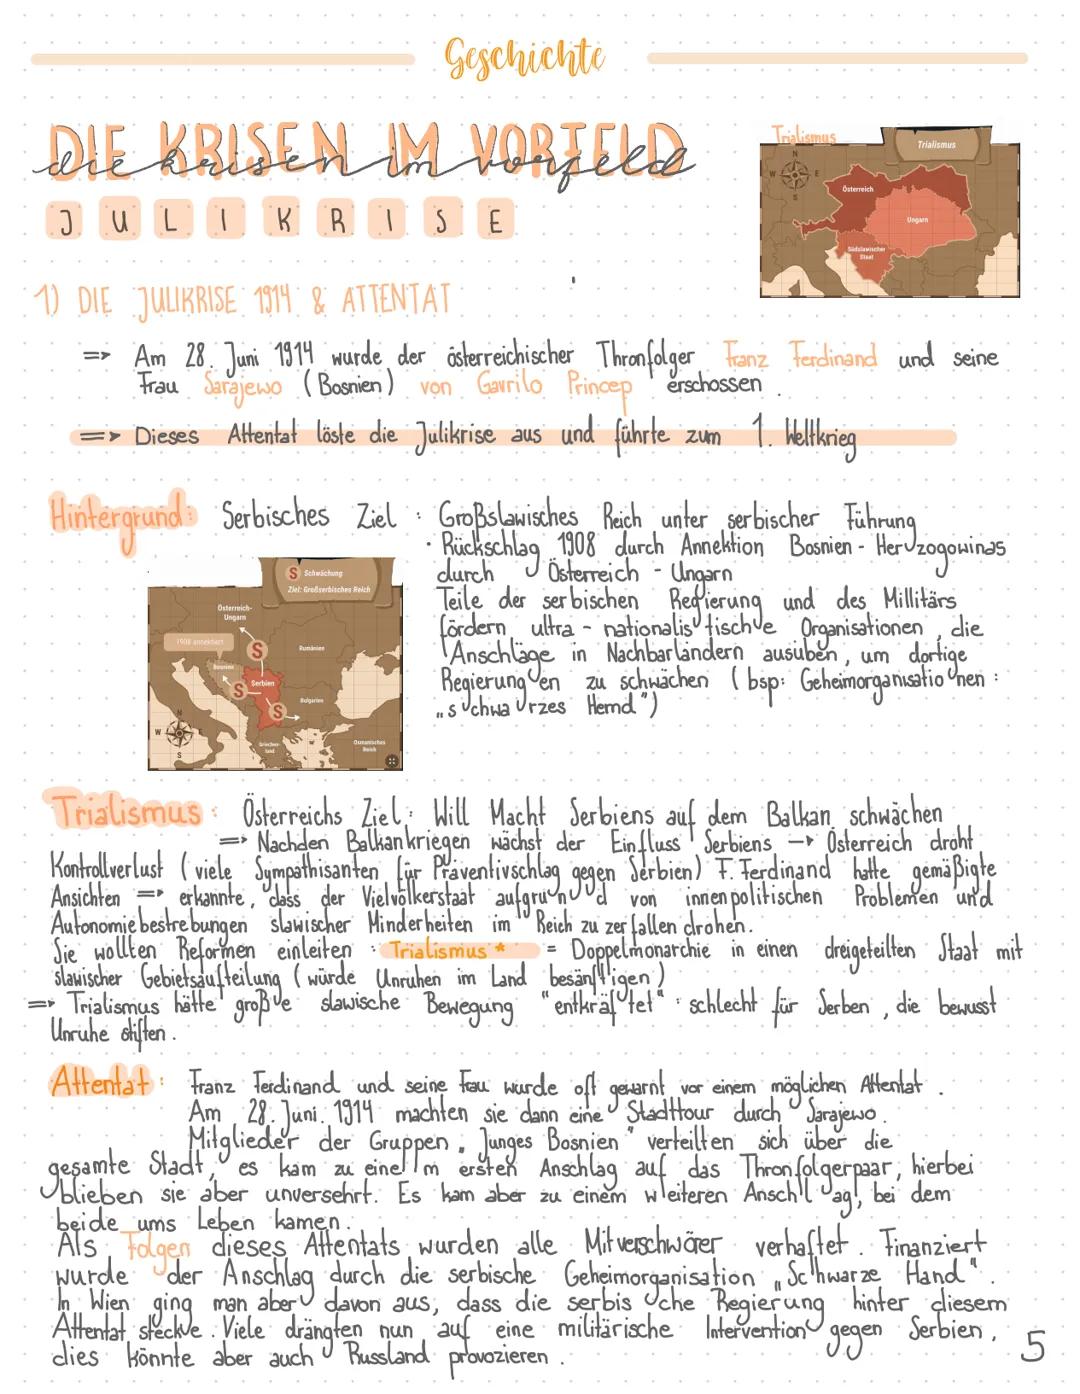 Geschichte
DIE KRISEN IM VORFELD
die krisen im vorfeld
JULIKRISE
Trialismus
Trialismus
N
W E
S
Österreich
Ungarn
Südslawischer
Staat
1) DIE JULIKRISE 1914 & ATTENTAT
=> Am 28. Juni 1914 wurde der österreichischer Thronfolger Franz Ferdinand und seine
Frau Sarajewo (Bosnien) von Gavrilo Princep erschossen.
=> Dieses Attentat löste die Julikrise aus und führte zum 1. Weltkrieg
Hintergrund: Serbisches Ziel : Großslawisches Reich unter serbischer Führung
· Rückschlag 1908 durch Annektion Bosnien - Herzogowinas
durch Österreich - Ungarn
Teile der serbischen Regierung und des Millitärs
fördern ultra - nationalistische Organisationen, die
Anschläge in Nachbarländern ausüben, um dortige
Regierungen zu schwächen (bsp: Geheimorganisationen:
"schwarzes Hemd")
S Schwächung
Ziel: Großserbisches Reich
Österreich-
Ungarn
1908 annektiert
S
Rumänien
Bosnien
Serbien
S
Bulgarien
S
N
W E
S
Griechen-
land
Osmanisches
Reich
Trialismus: Österreichs Ziel: Will Macht Serbiens auf dem Balkan schwächen
=> Nachden Balkankriegen wächst der Einfluss Serbiens -> Österreich droht
Kontrollverlust (viele Sympathisanten für Präventivschlag gegen Serbien) F. Ferdinand hatte gemäßigte
Ansichten => erkannte, dass der Vielvölkerstaat aufgrund von innenpolitischen Problemen und
Autonomiebestrebungen slawischer Minderheiten im Reich zu zerfallen drohen.
Sie wollten Reformen einleiten : Trialismus* = Doppelmonarchie in einen dreigeteilten Staat mit
slawischer Gebietsaufteilung (würde Unruhen im Land besänftigen)
=> Trialismus hätte große slawische Bewegung "entkräftet" : schlecht für Serben, die bewusst
Unruhe stiften.
Attentat: Franz Ferdinand und seine Frau wurde oft gewarnt vor einem möglichen Attentat.
Am 28. Juni. 1914 machten sie dann eine Stadttour durch Sarajewo.
Mitglieder der Gruppen „Junges Bosnien" verteilten sich über die
gesamte Stadt, es kam zu einem ersten Anschlag auf das Thronfolgerpaar, hierbei
blieben sie aber unversehrt. Es kam aber zu einem weiteren Anschlag, bei dem
beide ums Leben kamen.
Als Folgen dieses Attentats wurden alle Mitverschwörer verhaftet. Finanziert
wurde der Anschlag durch die serbische Geheimorganisation „Schwarze Hand".
In Wien ging man aber davon aus, dass die serbische Regierung hinter diesem
Attentat steckte. Viele drängten nun auf eine militärische Intervention gegen Serbien,
dies könnte aber auch Russland provozieren.
5